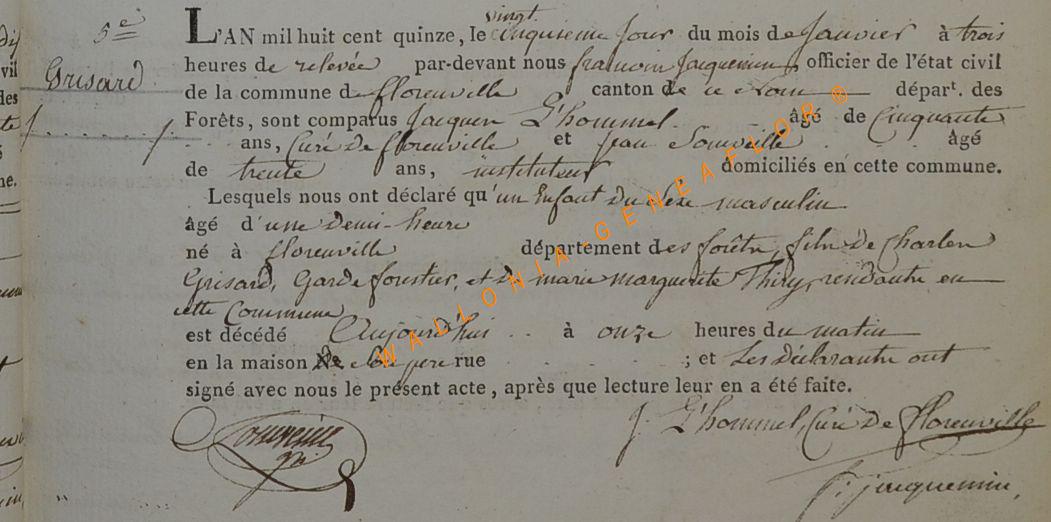 5.e
Grisard
vingt
L'AN mil huit cent quinze, le cinquieme jour du mois de Janvier à trois
heures de relevée par-devant nous francois Jacquemin, officier de l'état civil
de la commune de florenville canton de ce nom départ. des
Forêts, sont comparus Jacques L'hommel âgé de Cinquante
ans, Curé De florenville et Jean Sonveille âgé
de trente ans, instituteur domiciliés en cette commune.
Lesquels nous ont déclaré qu'un Enfant du sexe masculin
âgé d'une Demi-heure
né à florenville département des forêts, fils De Charles
Grisard, Garde forestier, et de marie marguerite Thiry, residants en
cette Commune
est décédé Aujourd'hui à onze heures du matin
en la maison de son pere rue ; et Les déclarants ont
signé avec nous le présent acte, après que lecture leur en a été faite.
J. L'hommel, Curé De florenville
f. jacquemin,
WALLONIA-GENEAFLOR ®